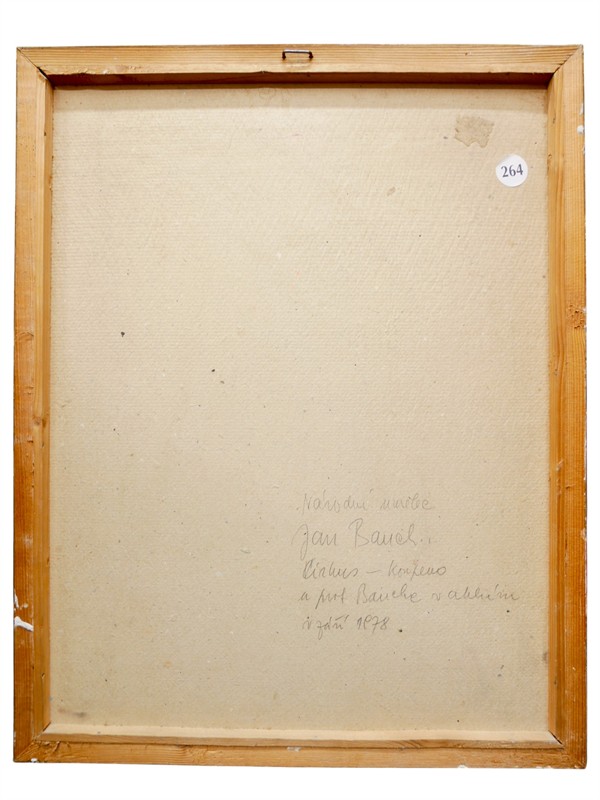 264
Národní umělec
Jan Bauch.
Cirkus – Koupeno
u prof Baucha v ateliéru
v září 1978